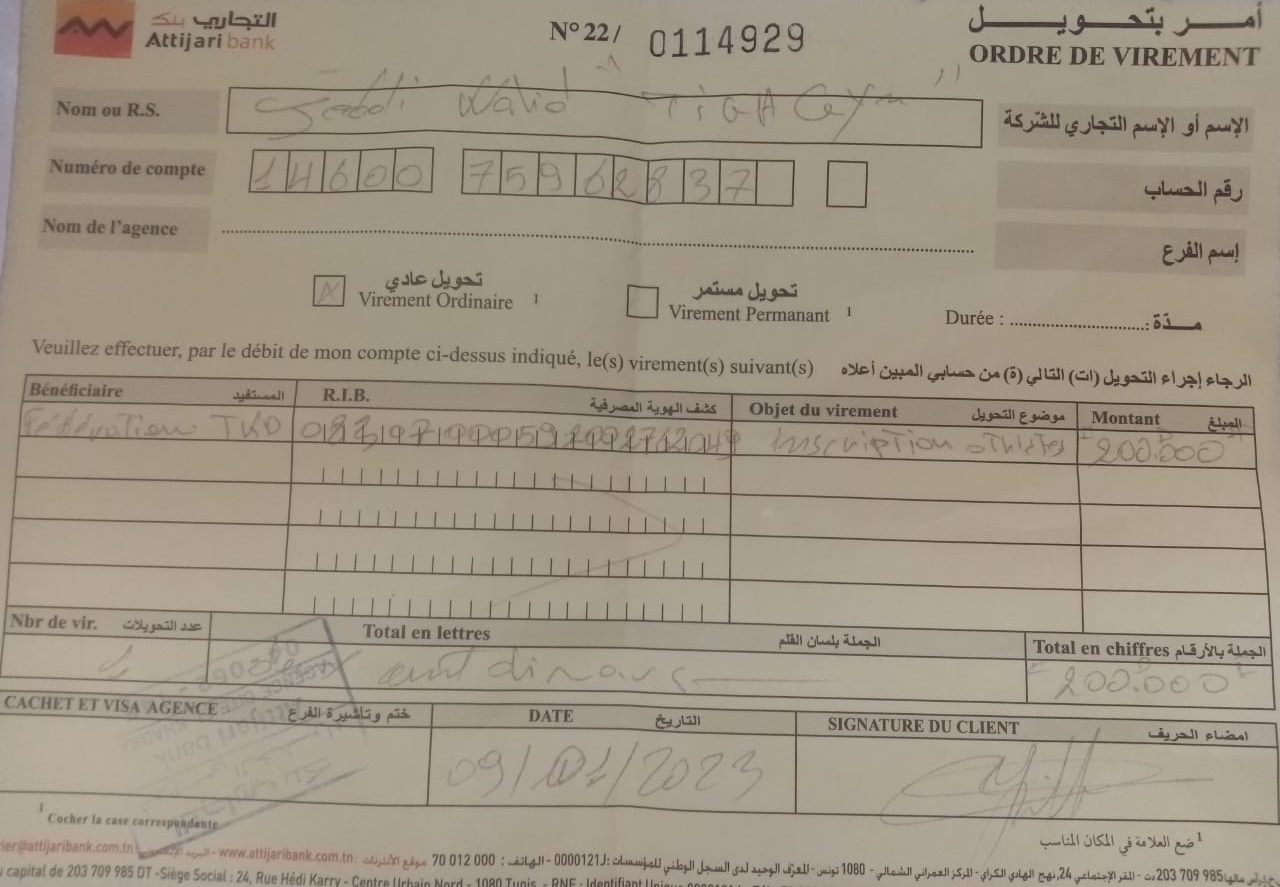 التجاري بنك
Attijari bank
N° 22/ 0114929
أمر بتحويل
ORDRE DE VIREMENT
Nom ou R.S. Walid " TIGA Gym " الإسم أو الإسم التجاري للشركة
Numéro de compte 14600 75962837 رقم الحساب
Nom de l'agence إسم الفرع
تحويل عادي
Virement Ordinaire 1
تحويل مستمر
Virement Permanant 1
Durée : مدّة :
Veuillez effectuer, par le débit de mon compte ci-dessus indiqué, le(s) virement(s) suivant(s) الرجاء إجراء التحويل (ات) التالي (ة) من حسابي المبين أعلاه
Bénéficiaire المستفيد R.I.B. كشف الهوية المصرفية Objet du virement موضوع التحويل Montant المبلغ
Fédération TKD inscription athletes 200.000
Nbr de vir. عدد التحويلات Total en lettres الجملة بلسان القلم Total en chiffres الجملة بالأرقام
1 cent dinars 200.000
CACHET ET VISA AGENCE ختم وتأشيرة الفرع DATE التاريخ SIGNATURE DU CLIENT امضاء الحريف
09/01/2023
1 Cocher la case correspondante
1 ضع العلامة في المكان المناسب
ier@attijaribank.com.tn www.attijaribank.com.tn : موقع الأنترنات - 70 012 000 : الهاتف - 0000121J : المعرّف الوحيد لدى السجل الوطني للمؤسسات - 1080 تونس - المركز العمراني الشمالي - 24، نهج الهادي الكراي - المقر الإجتماعي 203 709 985 دت
capital de 203 709 985 DT - Siège Social : 24, Rue Hédi Karry - Centre Urbain Nord - 1080 Tunis - RNE : Identifiant Unique